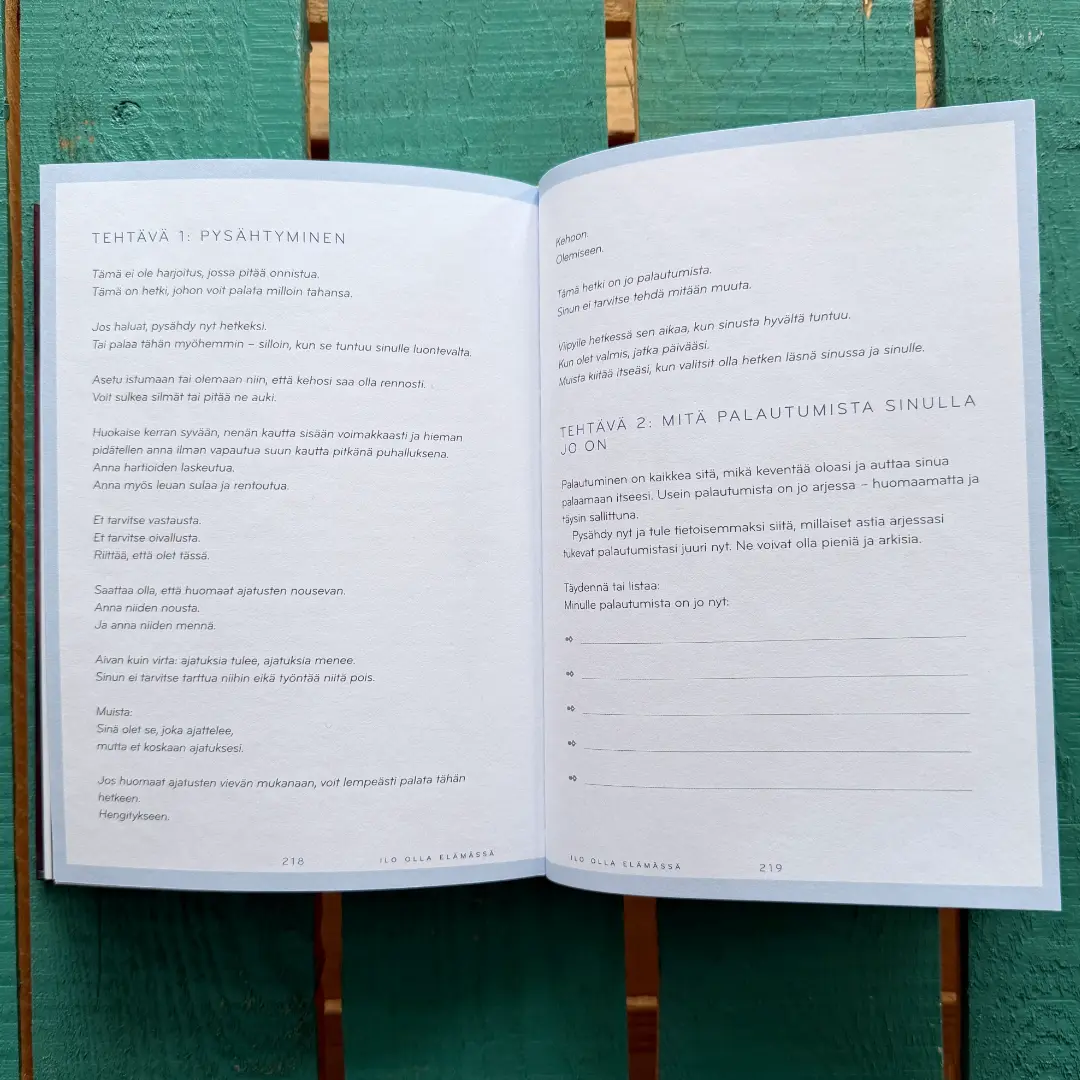 TEHTÄVÄ 1: PYSÄHTYMINEN
Tämä ei ole harjoitus, jossa pitää onnistua.
Tämä on hetki, johon voit palata milloin tahansa.
Jos haluat, pysähdy nyt hetkeksi.
Tai palaa tähän myöhemmin – silloin, kun se tuntuu sinulle luontevalta.
Asetu istumaan tai olemaan niin, että kehosi saa olla rennosti.
Voit sulkea silmät tai pitää ne auki.
Huokaise kerran syvään, nenän kautta sisään voimakkaasti ja hieman
pidätellen anna ilman vapautua suun kautta pitkänä puhalluksena.
Anna hartioiden laskeutua.
Anna myös leuan sulaa ja rentoutua.
Et tarvitse vastausta.
Et tarvitse oivallusta.
Riittää, että olet tässä.
Saattaa olla, että huomaat ajatusten nousevan.
Anna niiden nousta.
Ja anna niiden mennä.
Aivan kuin virta: ajatuksia tulee, ajatuksia menee.
Sinun ei tarvitse tarttua niihin eikä työntää niitä pois.
Muista:
Sinä olet se, joka ajattelee,
mutta et koskaan ajatuksesi.
Jos huomaat ajatusten vievän mukanaan, voit lempeästi palata tähän
hetkeen.
Hengitykseen.
218
ILO OLLA ELÄMÄSSÄ
Kehoon.
Olemiseen.
Tämä hetki on jo palautumista.
Sinun ei tarvitse tehdä mitään muuta.
Viipyile hetkessä sen aikaa, kun sinusta hyvältä tuntuu.
Kun olet valmis, jatka päivääsi.
Muista kiitää itseäsi, kun valitsit olla hetken läsnä sinussa ja sinulle.
TEHTÄVÄ 2: MITÄ PALAUTUMISTA SINULLA
JO ON
Palautuminen on kaikkea sitä, mikä keventää oloasi ja auttaa sinua
palaamaan itseesi. Usein palautumista on jo arjessa – huomaamatta ja
täysin sallittuna.
Pysähdy nyt ja tule tietoisemmaksi siitä, millaiset astia arjessasi
tukevat palautumistasi juuri nyt. Ne voivat olla pieniä ja arkisia.
Täydennä tai listaa:
Minulle palautumista on jo nyt:
ILO OLLA ELÄMÄSSÄ
219